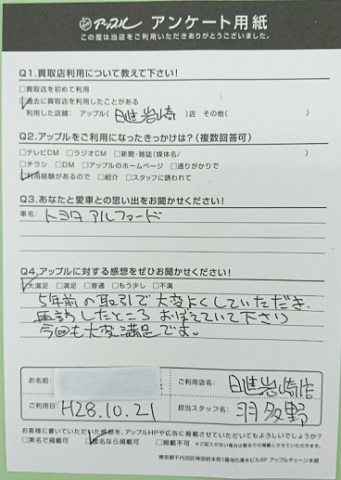 アップル アンケート用紙
この度は当店をご利用いただきありがとうございました。
Q1.買取店利用について教えて下さい!
□買取店を初めて利用
☑過去に買取店を利用したことがある
利用した店舗: アップル( 日進岩崎 )店 その他( )
Q2.アップルをご利用になったきっかけは?(複数回答可)
□テレビCM □ラジオCM □新聞・雑誌(媒体名/ )
□チラシ □DM □アップルのホームページ □通りがかりで
☑利用経験があるので □紹介 □スタッフに誘われて
Q3.あなたと愛車との思い出をお聞かせください!
車名: トヨタ アルファード
Q4.アップルに対する感想をぜひお聞かせください!
☑大満足 □満足 □普通 □もう少し □不満
5年前の取引で大変よくしていただき、
再訪したところ おぼえていて下さり
今回も大変満足です。
お名前:
ご利用店名: 日進岩崎店
ご利用日: H28.10.21
担当スタッフ名: 羽多野
お客様に書いていただいた感想を、アップルHPや広告に掲載させていただいてもよろしいでしょうか?
□実名で掲載可 ☑匿名なら掲載可 □掲載不可 ※ご記入がない場合は匿名での掲載とさせていただきます。